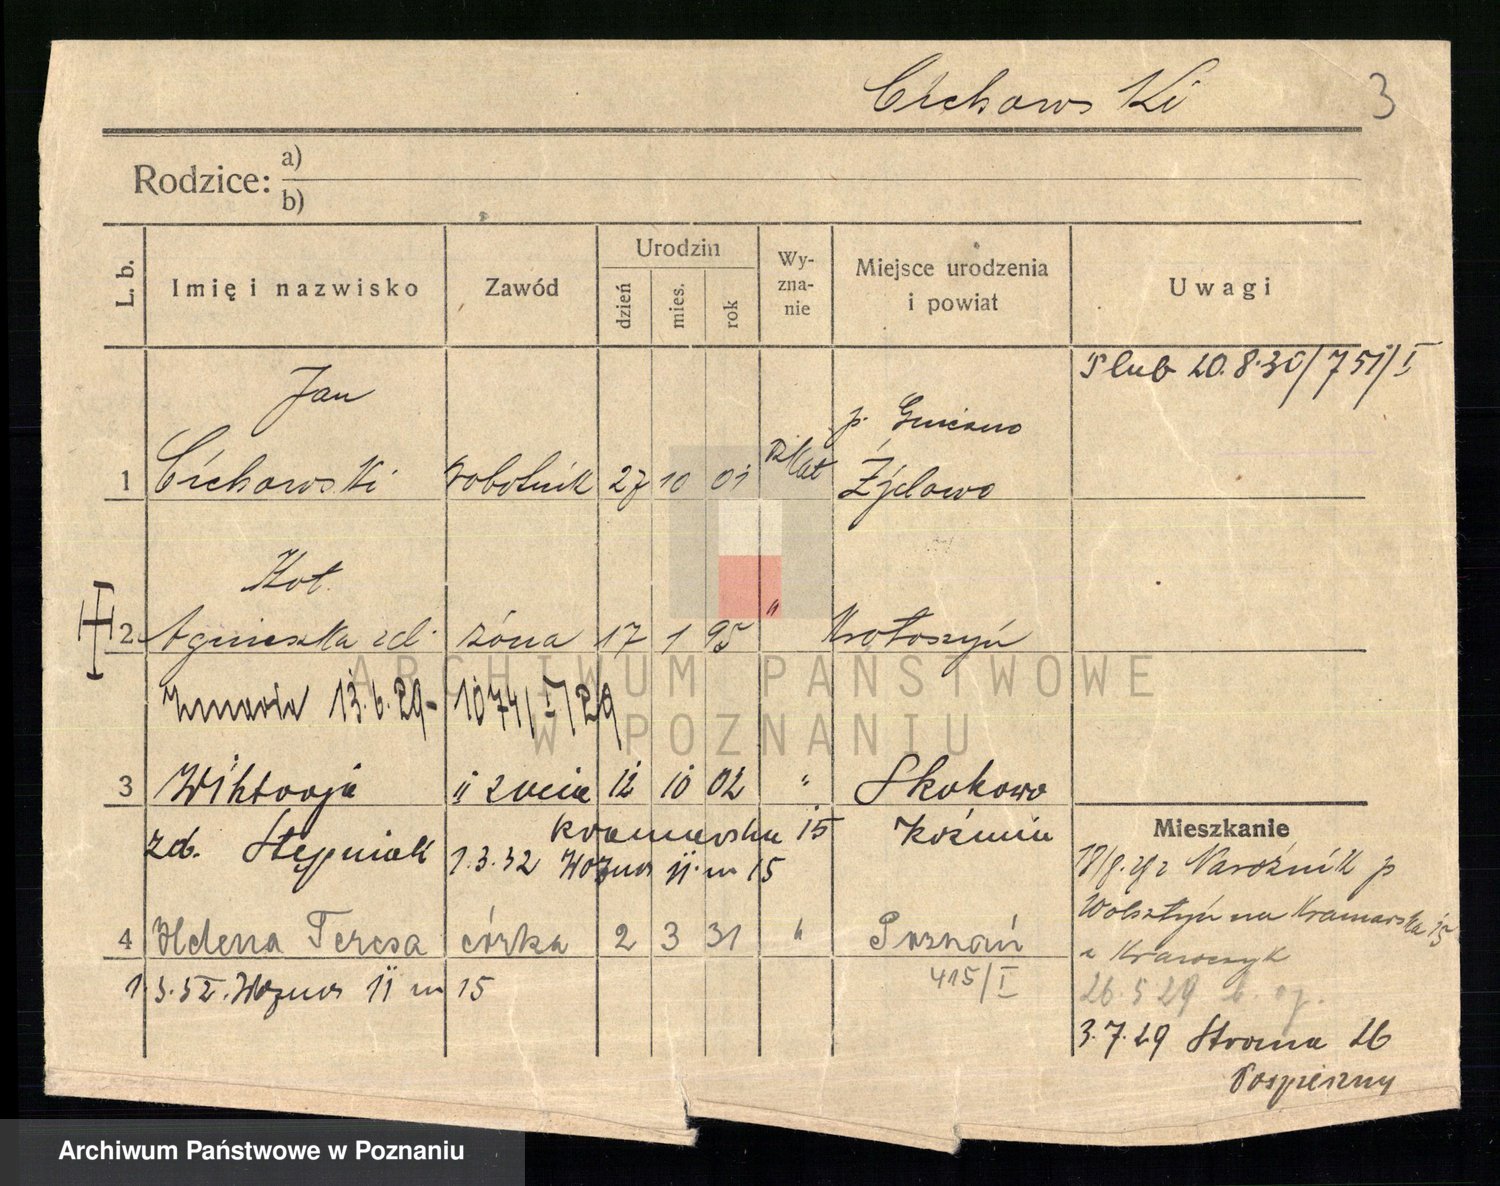 Cichowski 3
Rodzice: a)
b)
L. b. Imię i nazwisko Zawód Urodzin dzień mies. rok Wy-zna-nie Miejsce urodzenia i powiat Uwagi
Ślub 20.8.30/751/I
Jan
p. Gniezno
1 Cichowski robotnik 27 10 01 rz kat Żydowo
Kot
2 Agnieszka zd. żona 17 1 95 " Krotoszyń
Zmarła 13.6.29 - 1074/I/29
3 Wiktorja II żona 12 10 02 " Skokowo
zd. Stępniak Kramarska 15 Koźmin
1.3.32 II m 15
4 Helena Teresa córka 2 3 31 " Poznań
415/I
1.3.32. II m 15
Mieszkanie
Naroźnik p
Wolsztyń na Kramarska 15
u Krawczyk
26.5 29
3.7.29 Stroma 26
Pospieszny
ARCHIWUM PAŃSTWOWE
W POZNANIU
Archiwum Państwowe w Poznaniu